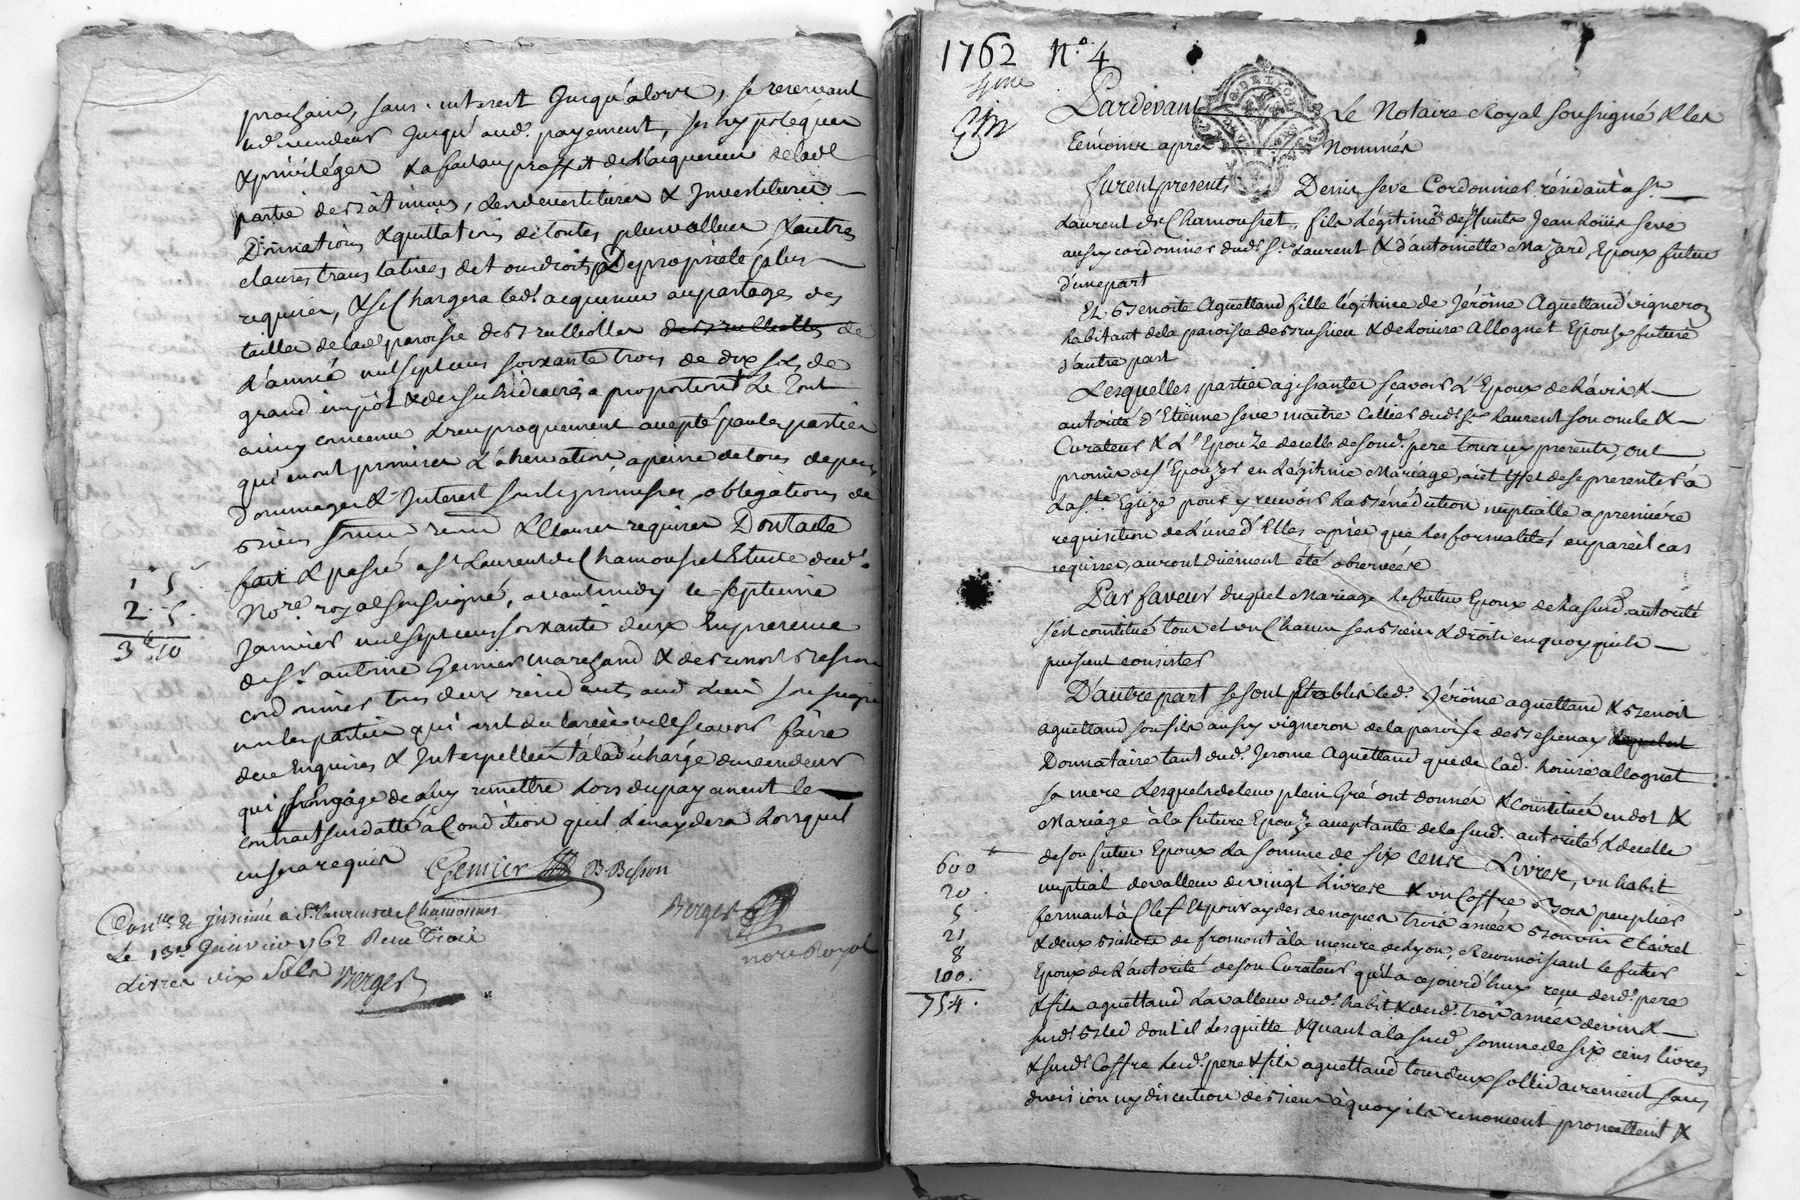 prochain, sans interest jusqu'alors, se reservant
led. vendeur jusqu'aud. payement, ses hypotéques
& priviléges & a fait au proffit dud. acquereur de lad.
partie de bâtiment, les devestitures & Investitures
Donnations & quittations de toutes plus vallues & autres
clauses translatives de tous droits De propriété a bien
requises, & se Chargera led. acquereur au partage des
tailles de lad. paroisse de Brullioles de
L'année mil sept cens soixante trois de dix sols de
grand impôt & des subsidiaires a proportion Le Tout
ainsy convenu & reciproquement accepté par les parties
qui en ont promises L'observation, a peine de tous depens
Dommages & Interest sous les promesses obligations de
biens soum. renon. & Clauses requises Dont acte
fait & passé a St Laurent de Chamousset Etude dud.
Nore. royal soussigné, avant midy le septieme
Janvier mil sept cens soixante deux En presence
de Sr. antoine Genier marchand & de Benoit Besson
cordonnier tous deux residants aud. Lieu soussignés
non les parties qui ont declarées ne le scavoir faire
de ce Enquises & Interpellées à la décharge du vendeur
qui s'engage de luy remettre Lors du payement le
contrat susdatté à Condition qu'il L'en aydera Lorsqu'il
en sera requis
1 5
2 5
3 10
Genier B. Besson
Berger
nore Royal
Con.lle & insinué à St. Laurens de Chamousset
Le 13e. Janvier 1762 Receu Trois
Livres dix Sols Berger
1762 N°. 4
Pardevant Le Notaire Royal soussigné & les
témoins après Nommés
furent presents Denis seve Cordonnier résidant à St.
Laurent de Chamousset, fils légitime de deffunts Jean Loüis seve
aussy cordonnier dud. St. Laurent & d'antoinette Mazard, Epoux futur
d'une part
Et Benoite Aguettand fille légitime de Jérôme Aguettand vigneron
habitant de la paroisse de Brussieu & de Loüise Allognet Epouze future
d'autre part
Lesquelles parties agissantes scavoir L'Epoux de L'avis &
autorité d'Etienne seve maitre Cellier dud. St. Laurent son oncle &
Curateur & L'Epouze de celle de son d. pere tous icy presents, ont
promis de s'Epouzer en Légitime Mariage, à cet Effet de se presenter à
La Ste. Eglize pour y recevoir La Bénédiction nuptialle a premiére
requisition de L'une d'Elles après que les formalités en pareil cas
requises, auront düement été observées
Par faveur duquel Mariage Le futur Epoux de La susd. autorité
s'est constitué tous et un Chacun ses Biens & droits en quoy qu'ils
puissent consister
D'autre part se sont Etablis led. Jérôme aguettand & Benoit
aguettand son fils aussy vigneron de la paroisse de Bessenay
Donnataire tant dud. Jerome Aguettand que de Lad. Loüise allognet
sa mere Lesquels de leur plein Gré ont donnés & Constitués en dot &
Mariage à la future Epouze acceptante de la susd. autorité & de celle
de son futur Epoux La somme de six cens Livres, un habit
nuptial de valleur de vingt Livres & un Coffre Bois peuplier
fermant à Clef Et pour aydes de nopces trois anées Bon vin Clairet
& deux Bichets de froment à la mesure de Lyon, Reconnoissant le futur
Epoux de L'autorité de son Curateur qu'il a cejourd'huy reçu desd. pere
& fils aguettand La valleur dud. habit & desd. trois anées de vin &
susd. Bled dont il Les quitte & quant a la susd. somme de six cens livres
& susd. Coffre Lesd. pere & fils aguettand tous deux sollidairement sans
division ny discution de Biens à quoy ils renoncent promettent &
600
20
5
21
8
100
754